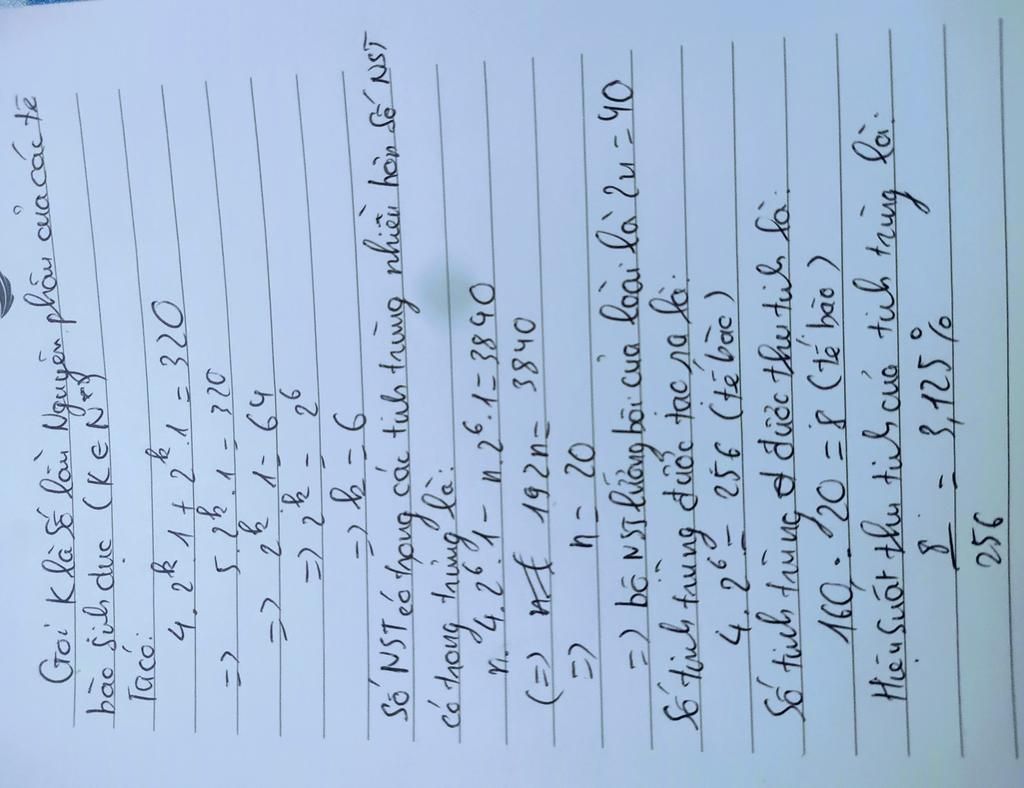 Gọi K là số lần Nguyên phân của các tế
bào sinh dục (K ∈ N*)
Ta có:
4.2^k.1 + 2^k.1 = 320
=> 5.2^k.1 = 320
=> 2^k.1 = 64
=> 2^k = 2^6
=> k = 6
Số NST có trong các tinh trùng nhiều hơn số NST
có trong trứng là:
n.4.2^6.1 - n.2^6.1 = 3840
(=> 192n = 3840
=> n = 20
=> bộ NST lưỡng bội của loài là 2n = 40
Số tinh trùng được tạo ra là:
4.2^6 = 256 (tế bào)
Số tinh trùng được thụ tinh là:
160 : 20 = 8 (tế bào)
Hiệu suất thụ tinh của tinh trùng là:
8/256 = 3,125%